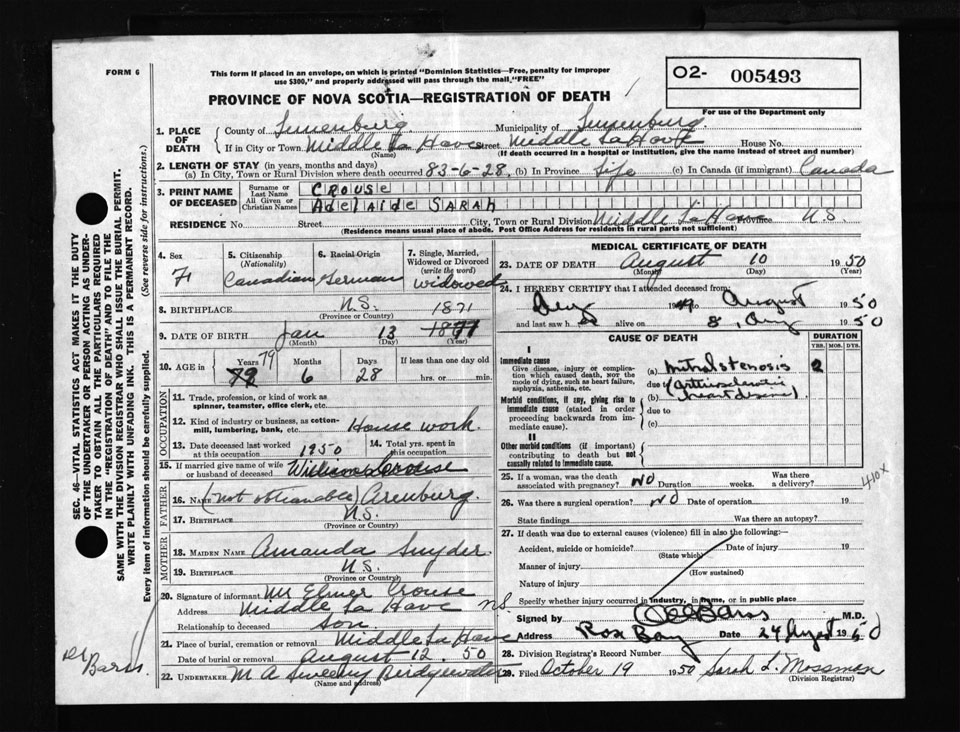 FORM 6
This form if placed in an envelope, on which is printed "Dominion Statistics—Free, penalty for improper
use $300," and properly addressed will pass through the mail "FREE"
O2- 005493
For use of the Department only
PROVINCE OF NOVA SCOTIA—REGISTRATION OF DEATH
1. PLACE OF DEATH
County of Lunenburg Municipality of Lunenburg
If in City or Town Middle La Have Street Middle La Have House No.
(Name) (If death occurred in a hospital or institution, give the name instead of street and number)
2. LENGTH OF STAY (in years, months and days)
(a) In City, Town or Rural Division where death occurred 83-6-28, (b) In Province Life (c) In Canada (if immigrant) Canada
3. PRINT NAME OF DECEASED
Surname or Last Name CROUSE
All Given or Christian Names Adelaide SARAh
RESIDENCE No. Street City, Town or Rural Division Middle La Have Province N.S.
(Residence means usual place of abode. Post Office Address for residents in rural parts not sufficient)
4. Sex
F
5. Citizenship (Nationality)
Canadian
6. Racial Origin
German
7. Single, Married, Widowed or Divorced (write the word)
widowed
8. BIRTHPLACE N.S.
(Province or Country)
1871
9. DATE OF BIRTH Jan 13
(Month) (Day) (Year)
10. AGE in
Years Months Days If less than one day old
79
6 28 hrs. or min.
OCCUPATION
11. Trade, profession, or kind of work as
spinner, teamster, office clerk, etc.
12. Kind of industry or business, as cotton-
mill, lumbering, bank, etc. House work.
13. Date deceased last worked at this occupation 1950
14. Total yrs. spent in this occupation
15. If married give name of wife or husband of deceased William Crouse
FATHER
16. NAME (not obtainable) Arenburg.
17. BIRTHPLACE N.S.
(Province or Country)
MOTHER
18. MAIDEN NAME Amanda Snyder.
19. BIRTHPLACE N.S.
(Province or Country)
20. Signature of informant Mr Elmer Crouse
Address Middle La Have N.S.
Relationship to deceased son
21. Place of burial, cremation or removal Middle La Have
Date of burial or removal August 12. 50
22. UNDERTAKER M A Sweeny Bridgewater
(Name and address)
MEDICAL CERTIFICATE OF DEATH
23. DATE OF DEATH August 10 1950
(Month) (Day) (Year)
24. I HEREBY CERTIFY that I attended deceased from:
to August 1950
and last saw h alive on 8, Aug 1950
CAUSE OF DEATH
DURATION
YRS. MOS. DYS.
I
Immediate cause
Give disease, injury or complication which caused death, NOT the mode of dying, such as heart failure, asphyxia, asthenia, etc.
(a) Mitral stenosis 2
due to (Arteriosclerotic
(b) heart disease)
Morbid conditions, if any, giving rise to immediate cause (stated in order proceeding backwards from immediate cause).
due to
(c)
II
Other morbid conditions (if important) contributing to death but not causally related to immediate cause.
25. If a woman, was the death associated with pregnancy? NO Duration weeks. Was there a delivery?
410X
26. Was there a surgical operation? NO Date of operation 19
State findings Was there an autopsy?
27. If death was due to external causes (violence) fill in also the following:—
Accident, suicide or homicide? Date of injury 19
(State which)
Manner of injury
(How sustained)
Nature of injury
Specify whether injury occurred in industry, in home, or in public place
Signed by Barss M.D.
Address Rose Bay Date 24 August 1950
28. Division Registrar's Record Number
29. Filed October 19 1950 Sarah L. Mossman
(Division Registrar)
SEC. 46—VITAL STATISTICS ACT MAKES IT THE DUTY
OF THE UNDERTAKER OR PERSON ACTING AS UNDER-
TAKER TO OBTAIN ALL THE PARTICULARS REQUIRED
IN THE "REGISTRATION OF DEATH" AND TO FILE THE
SAME WITH THE DIVISION REGISTRAR WHO SHALL ISSUE THE BURIAL PERMIT.
WRITE PLAINLY WITH UNFADING INK. THIS IS A PERMANENT RECORD.
Every item of information should be carefully supplied. (See reverse side for instructions.)
Dr Barss.